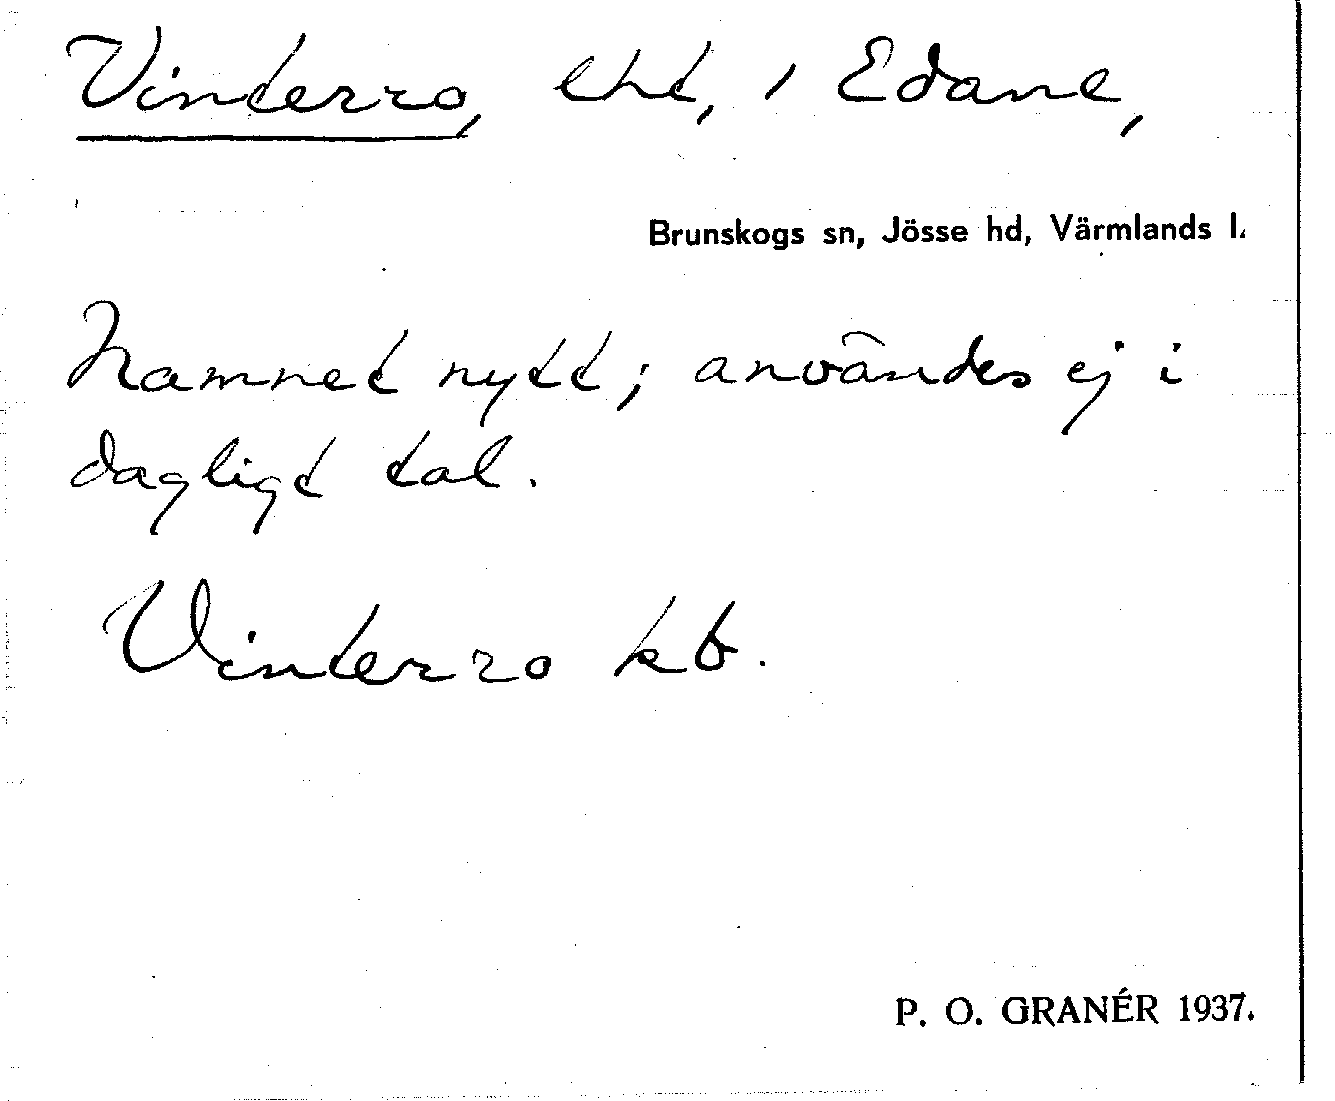 Vinterro, lht, i Edane,
Brunskogs sn, Jösse hd, Värmlands l.
Namnet nytt; användes ej i
dagligt tal.
Vinterro kb.
P. O. GRANÉR 1937.